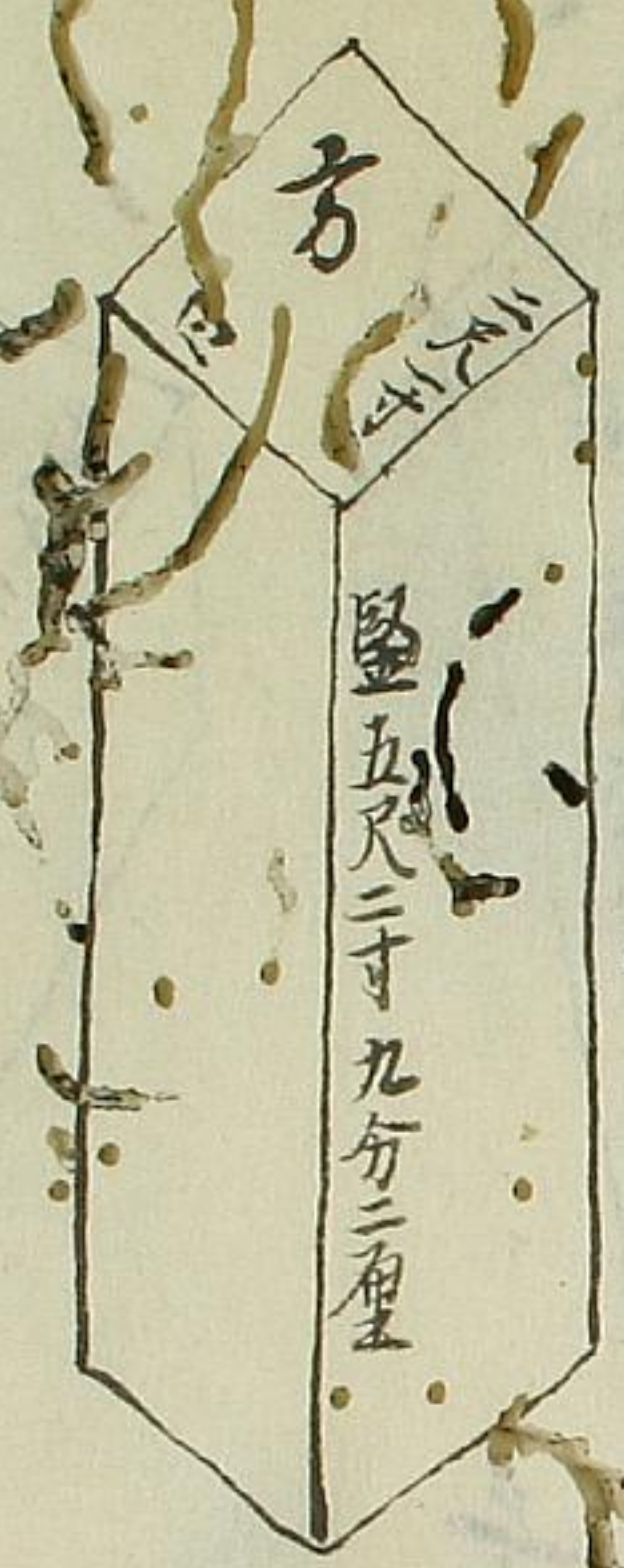 方
二尺一寸
竪五尺二寸九分二厘